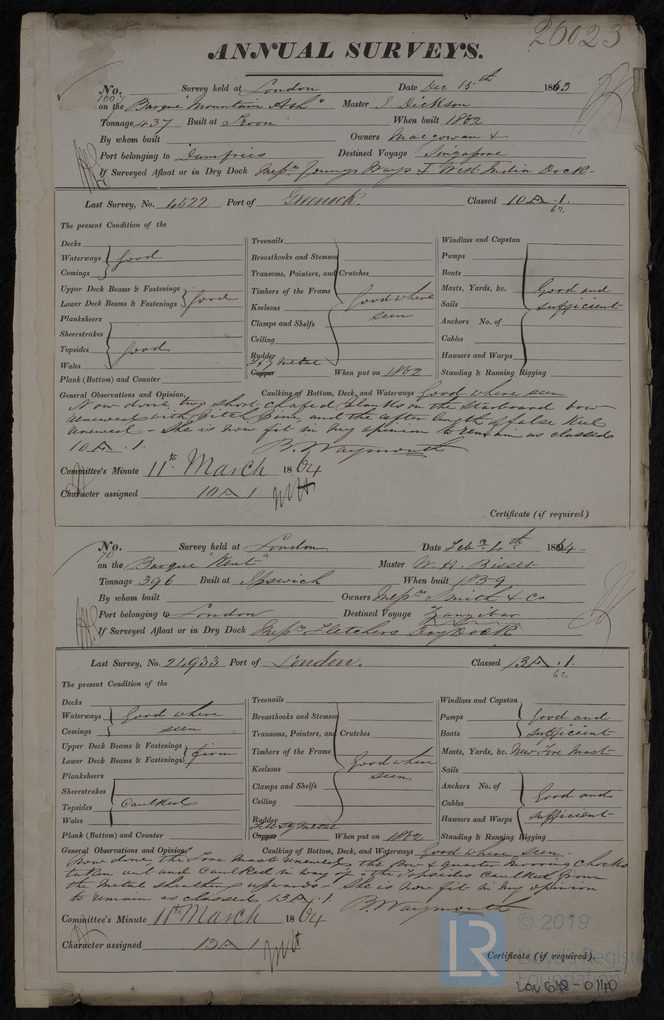 26023
ANNUAL SURVEYS.
No. Survey held at London Date Dec 15th 1863
on the Barque "Mountain Ash" Master J Dickson
Tonnage 437 Built at Troon When built 1862
By whom built Owners Maccowan &
Port belonging to Dumfries Destined Voyage Singapore
If Surveyed Afloat or in Dry Dock West India Dock.
Last Survey, No. 4522 Port of Greenock. Classed 10 A .1.
62
The present Condition of the
Decks
Waterways good
Comings
Upper Deck Beams & Fastenings
Lower Deck Beams & Fastenings good
Planksheers
Sheerstrakes
Topsides good
Wales
Plank (Bottom) and Counter
Treenails
Breasthooks and Stemson
Transoms, Pointers, and Crutches
Timbers of the Frame
Keelsons Good where
seen
Clamps and Shelfs
Ceiling
Rudder
Y Metal
Copper When put on 1862
Windlass and Capstan
Pumps
Boats
Masts, Yards, &c. Good and
Sails sufficient
Anchors No. of
Cables
Hawsers and Warps
Standing & Running Rigging
General Observations and Opinion, Caulking of Bottom, Deck, and Waterways Good where seen
Now done two short chafed planks on the Starboard bow
renewed with Pitch Pine, and the after length of false Keel
renewed - She is now fit in my opinion to remain as classed
10 A .1. B. Waymouth
Committee's Minute 11th March 1864
Character assigned 10 A 1
Certificate (if required)
No. Survey held at London Date Feby 4th 1864
70
on the Barque "Kent" Master W. A. Bisset
Tonnage 396 Built at Ipswich When built 1859
By whom built Owners Messrs Smith & Co
Port belonging to London Destined Voyage Zanzibar
If Surveyed Afloat or in Dry Dock Messrs Fletchers Dry Dock
Last Survey, No. 24933 Port of London. Classed 13 A .1.
62
The present Condition of the
Decks
Waterways Good where
Comings seen
Upper Deck Beams & Fastenings
Lower Deck Beams & Fastenings firm
Planksheers
Sheerstrakes
Topsides Caulked
Wales
Plank (Bottom) and Counter
Treenails
Breasthooks and Stemson
Transoms, Pointers, and Crutches
Timbers of the Frame
Keelsons Good where
seen
Clamps and Shelfs
Ceiling
Rudder
Felt & Y Metal
Copper When put on 1862
Windlass and Capstan
Pumps Good and
Boats sufficient
Masts, Yards, &c. New Fore Mast
Sails
Anchors No. of
Cables Good and
Hawsers and Warps sufficient
Standing & Running Rigging
General Observations and Opinion, Caulking of Bottom, Deck, and Waterways Good where seen
Now done, the Fore Mast renewed, the Bow & Quarter Mooring Chocks
taken out and Caulked in way of - the Topsides Caulked from
the Metal sheathing upwards - She is now fit in my opinion
to remain as classed 13 A .1 B. Waymouth
Committee's Minute 11th March 1864
Character assigned 13 A 1
Certificate (if required).
© 2019
LR
Lloyd's Register
Foundation
LON 618-0140